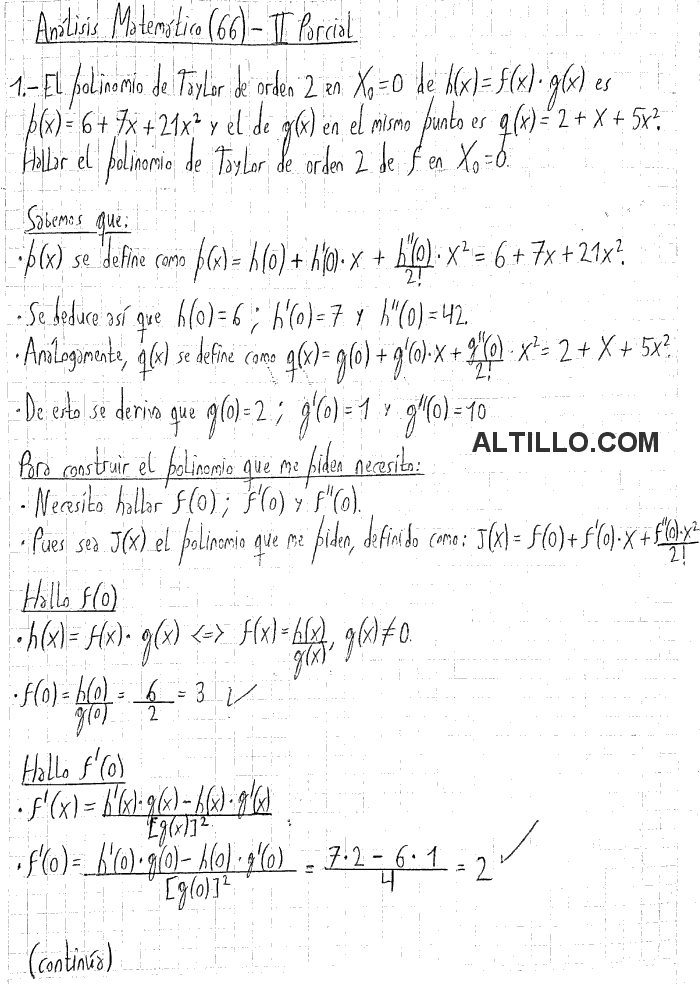 Análisis Matemático (66) - II Parcial
1.- El polinomio de Taylor de orden 2 en X₀=0 de h(x)=f(x)·g(x) es
p(x)=6+7x+21x² y el de g(x) en el mismo punto es q(x)=2+X+5x².
Hallar el polinomio de Taylor de orden 2 de f en X₀=0.
Sabemos que:
·p(x) se define como p(x)=h(0)+h'(0)·x+h''(0)/2!·x²=6+7x+21x².
·Se deduce así que h(0)=6; h'(0)=7 y h''(0)=42.
·Análogamente, q(x) se define como q(x)=g(0)+g'(0)·x+g''(0)/2!·x²=2+X+5x².
·De esto se deriva que g(0)=2; g'(0)=1 y g''(0)=10
ALTILLO.COM
Para construir el polinomio que me piden necesito:
·Necesito hallar f(0); f'(0) y f''(0).
·Pues sea J(x) el polinomio que me piden, definido como: J(x)=f(0)+f'(0)·x+f''(0)·x²/2!
Hallo f(0)
·h(x)=f(x)·g(x) <=> f(x)=h(x)/g(x), g(x)≠0.
·f(0)=h(0)/g(0)=6/2=3 ✓
Hallo f'(0)
·f'(x)=h'(x)·g(x)-h(x)·g'(x)/[g(x)]²
·f'(0)=h'(0)·g(0)-h(0)·g'(0)/[g(0)]²=7·2-6·1/4=2 ✓
(continúa)